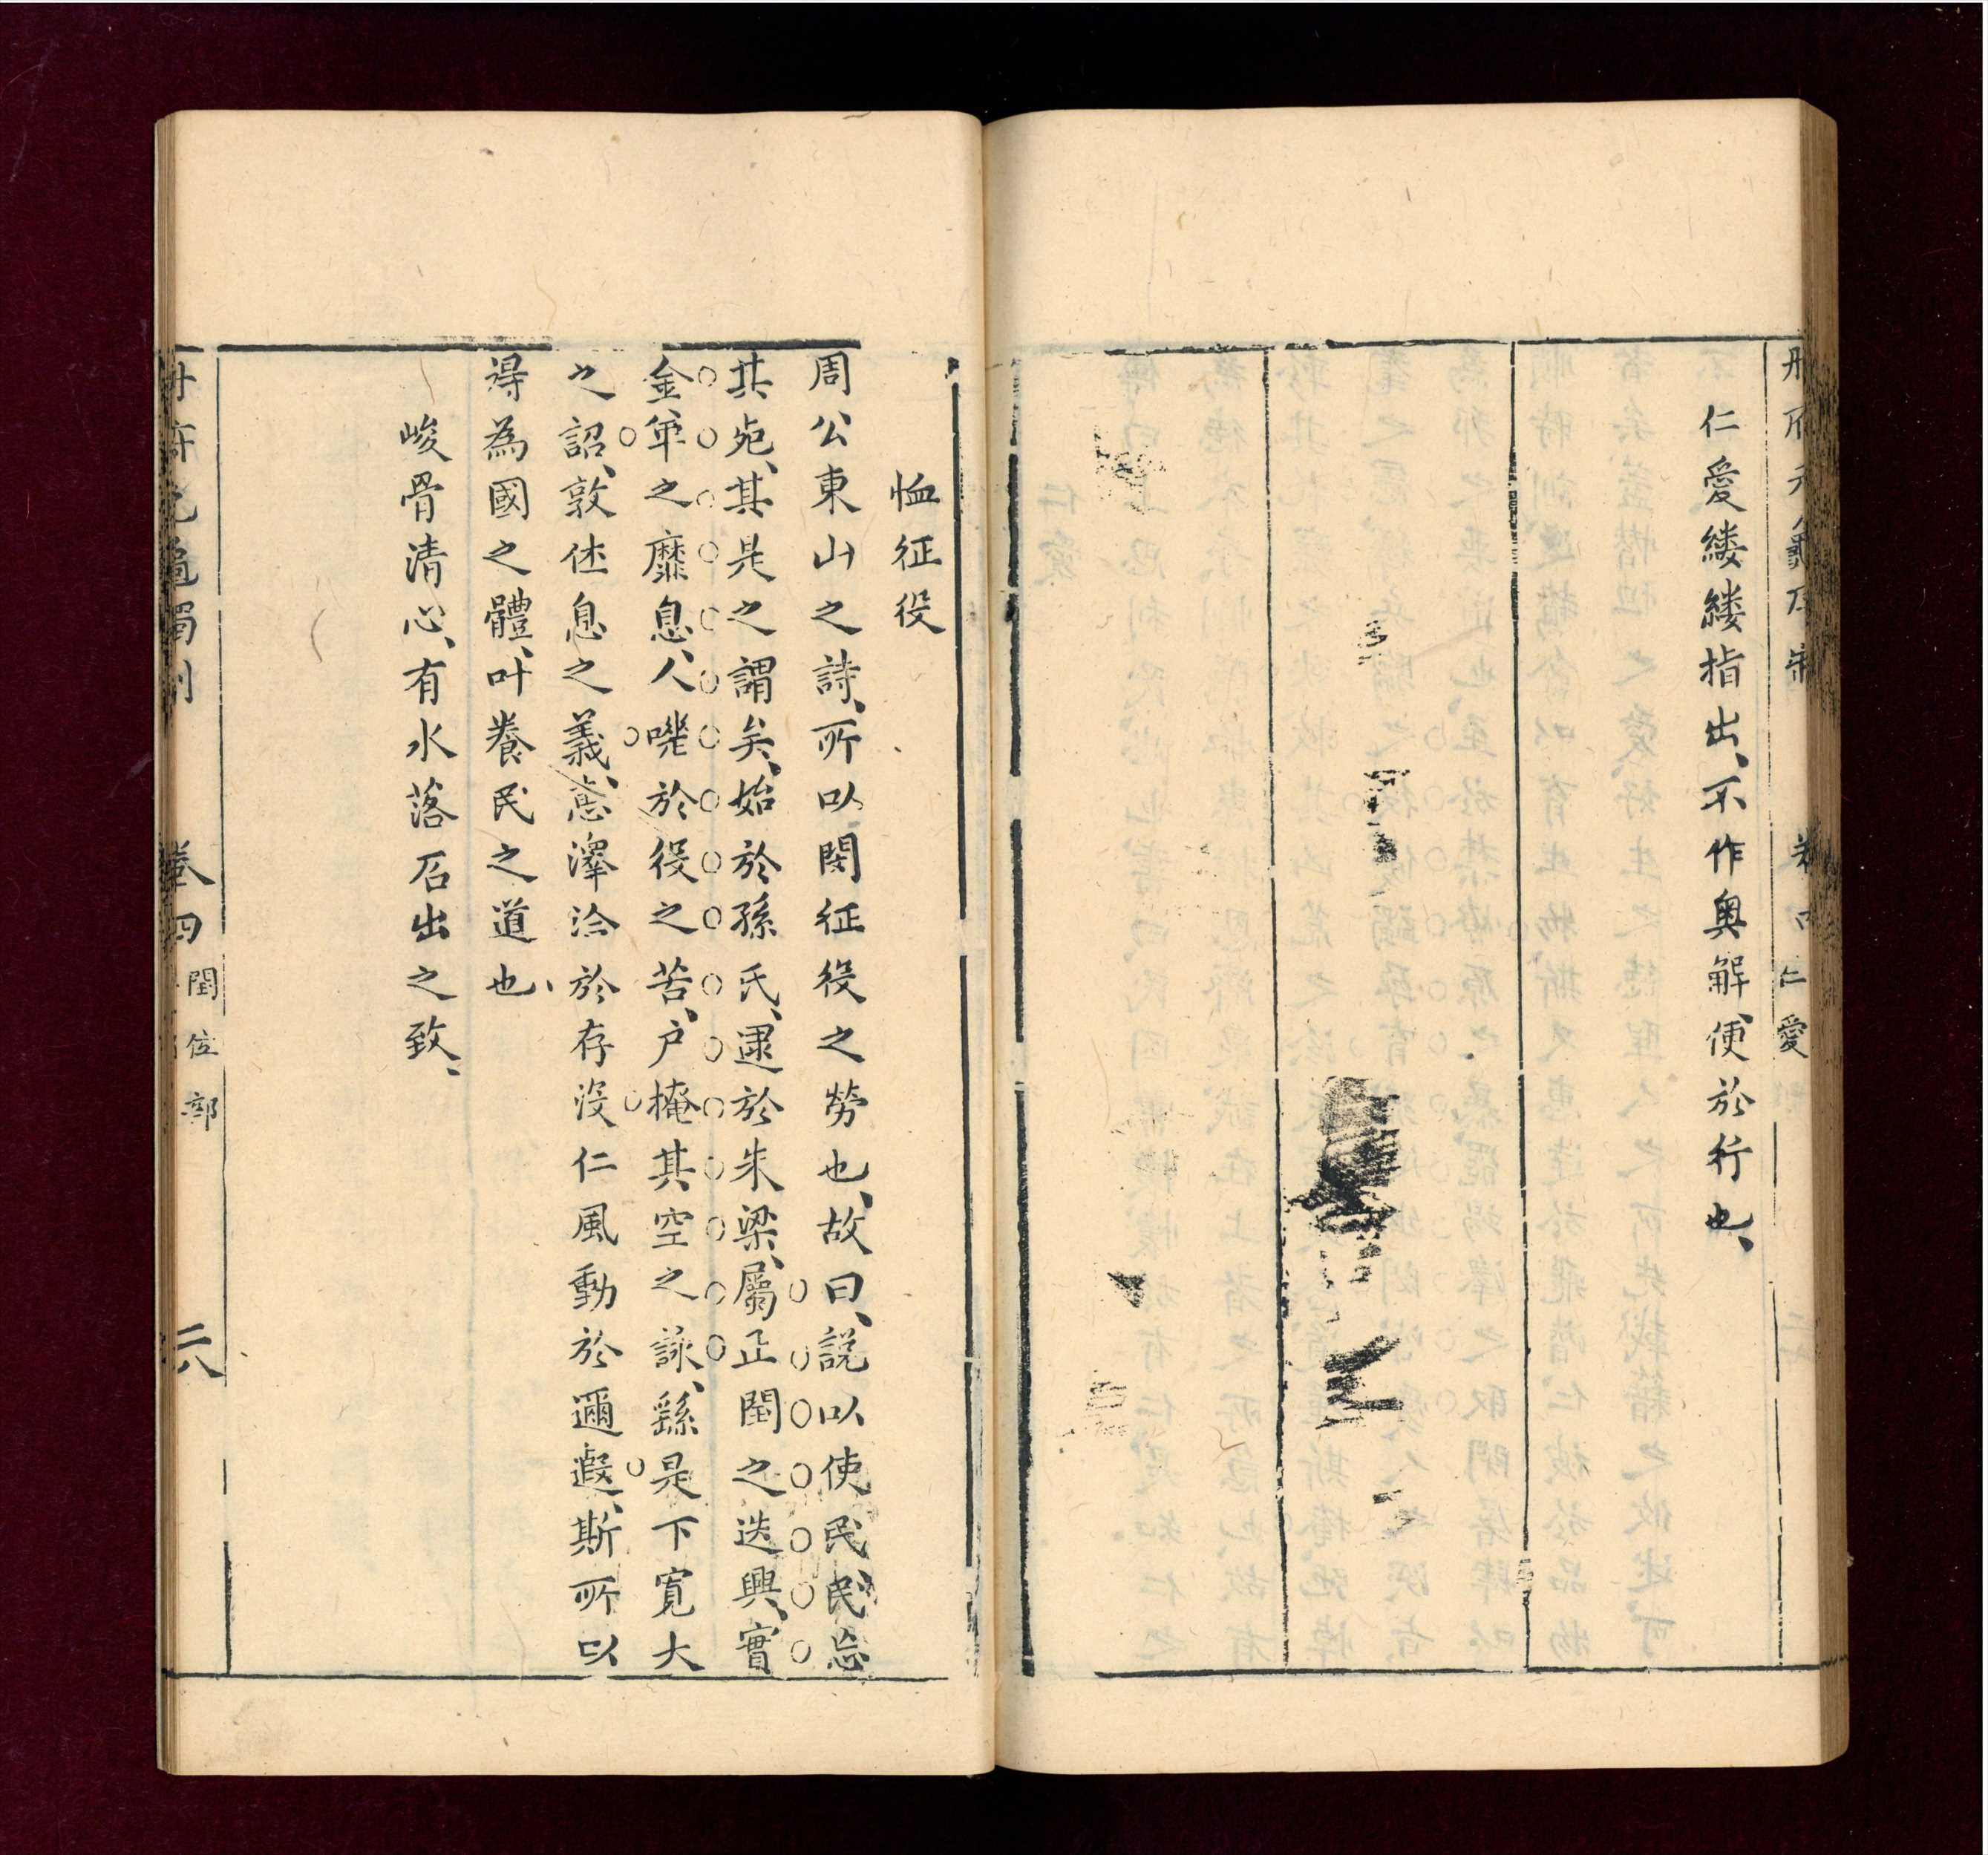 仁愛
仁愛縷縷指出、不作奧解、便於行也、
恤征役
周公東山之詩、所以閔征役之勞也、故曰、説以使民、民忘
其死、其是之謂矣、始於孫氏、逮於朱梁、屬正閏之迭興、實
金革之靡息、人嘆於役之苦、户掩其空之詠、繇是下寬大
之詔、敦休息之義、惪澤洽於存没、仁風動於邇遐、斯所以
得為國之體、叶養民之道也、
峻骨清心、有水落石出之致、
卷四 閏位部 二八